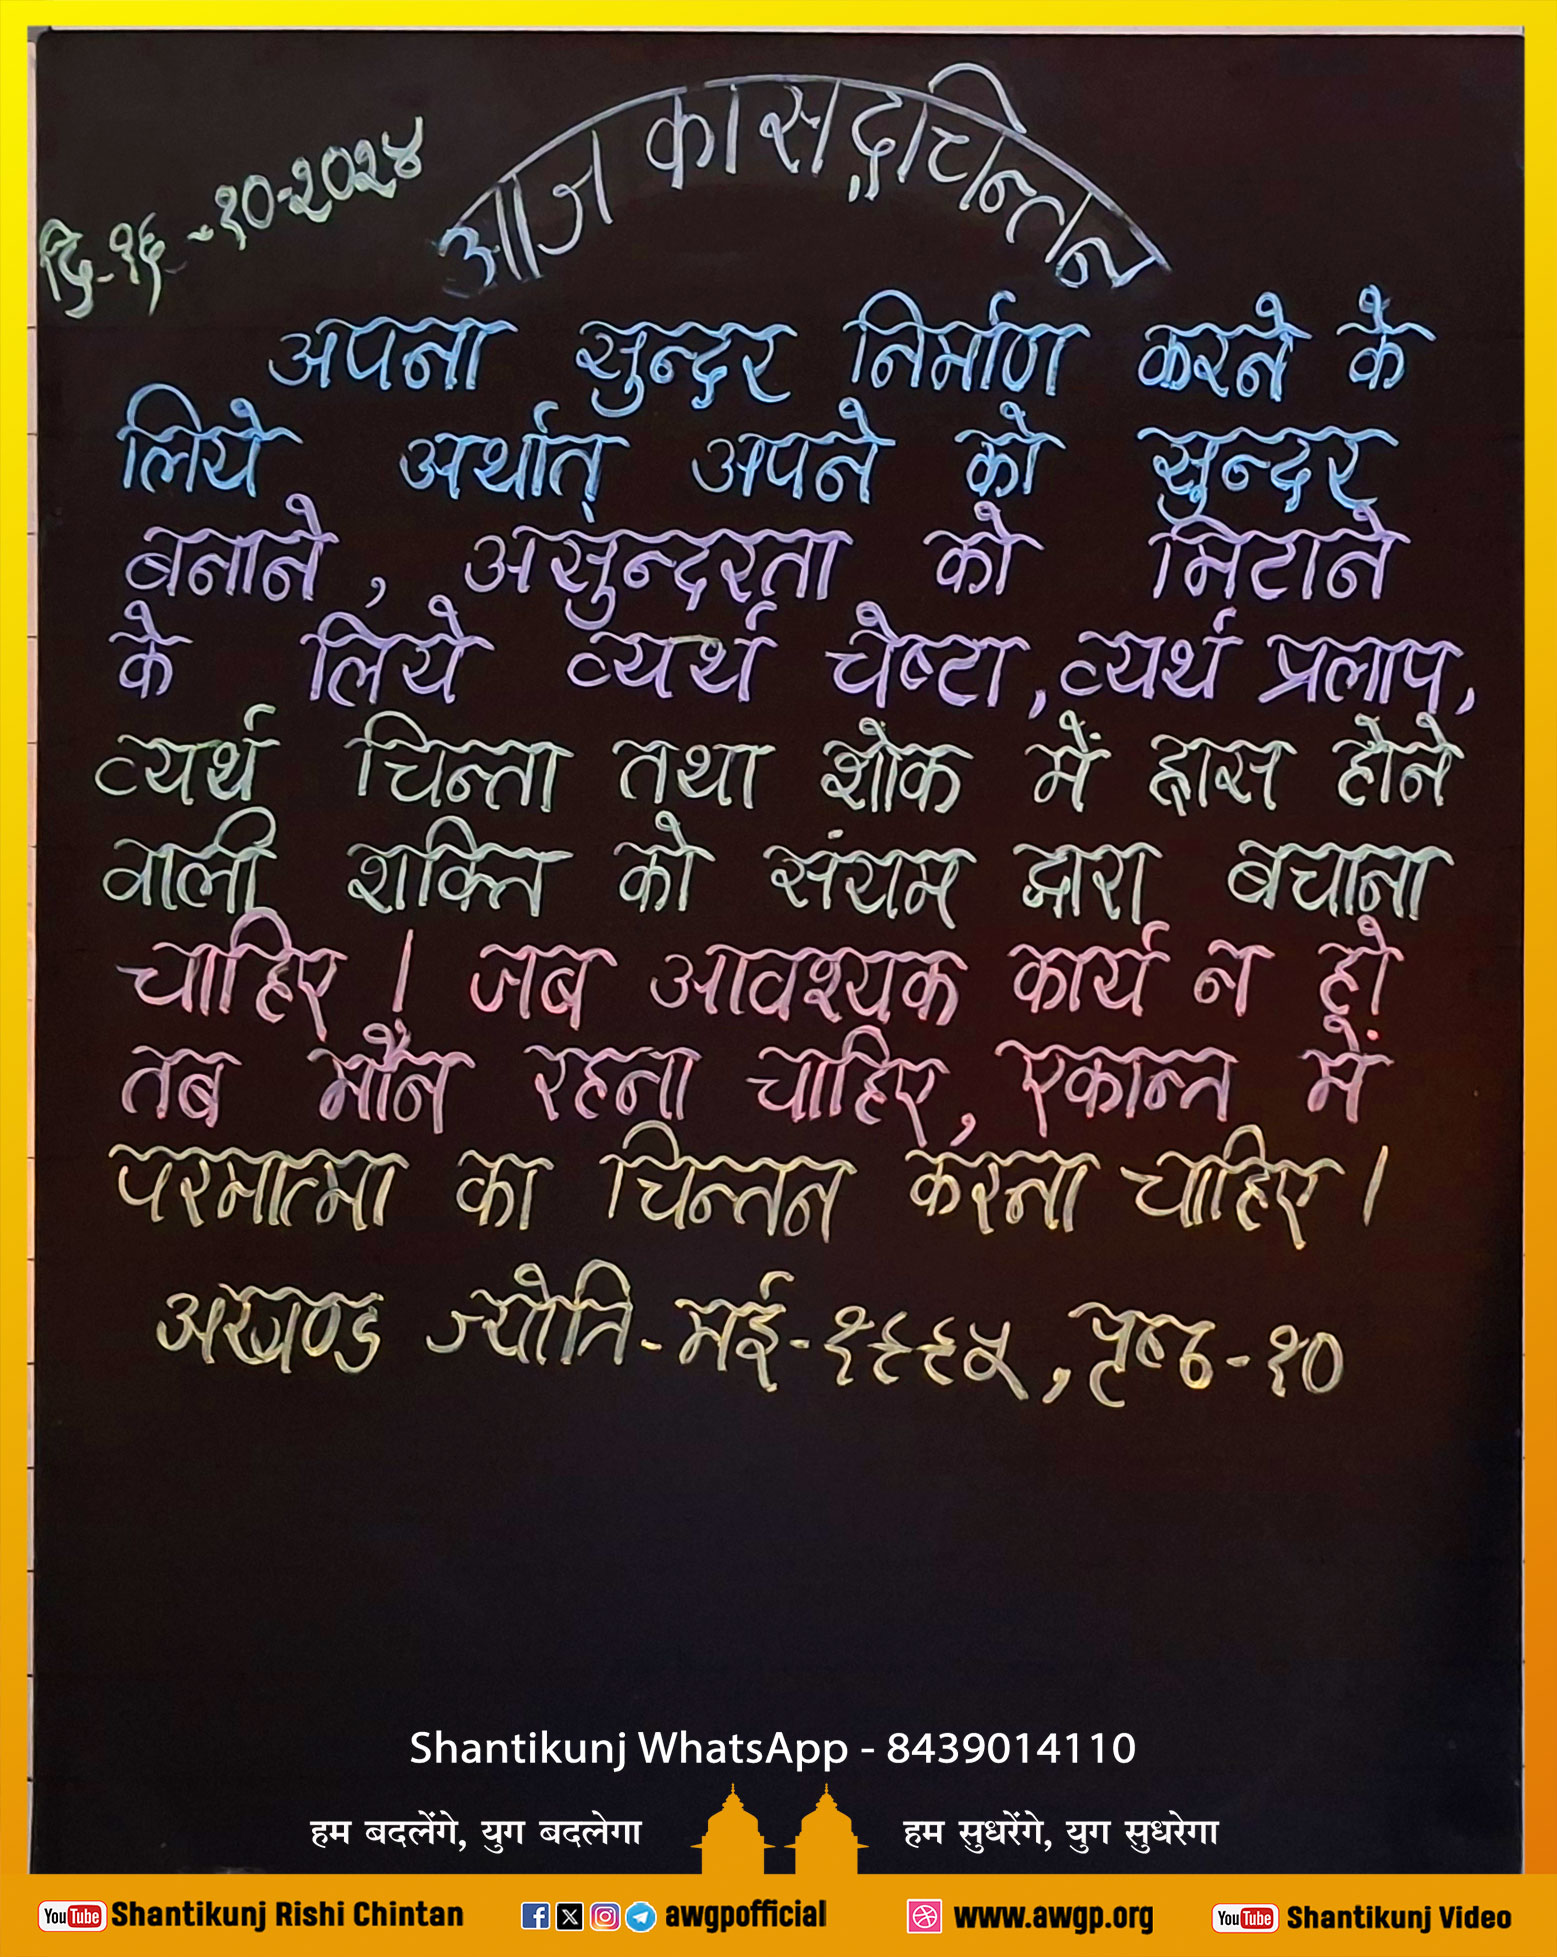 दि-१६-१०-२०२४
आज का सद्चिन्तन
अपना सुन्दर निर्माण करने के
लिये अर्थात् अपने को सुन्दर
बनाने, असुन्दरता को मिटाने
के लिये व्यर्थ चेष्टा, व्यर्थ प्रलाप,
व्यर्थ चिन्ता तथा शोक में ह्रास होने
वाली शक्ति को संयम द्वारा बचाना
चाहिए। जब आवश्यक कार्य न हो
तब मौन रहना चाहिए, एकान्त में
परमात्मा का चिन्तन करना चाहिए।
अखण्ड ज्योति-मई-१९९५, पृष्ठ-१०
Shantikunj WhatsApp - 8439014110
हम बदलेंगे, युग बदलेगा हम सुधरेंगे, युग सुधरेगा
YouTube Shantikunj Rishi Chintan awgpofficial www.awgp.org YouTube Shantikunj Video